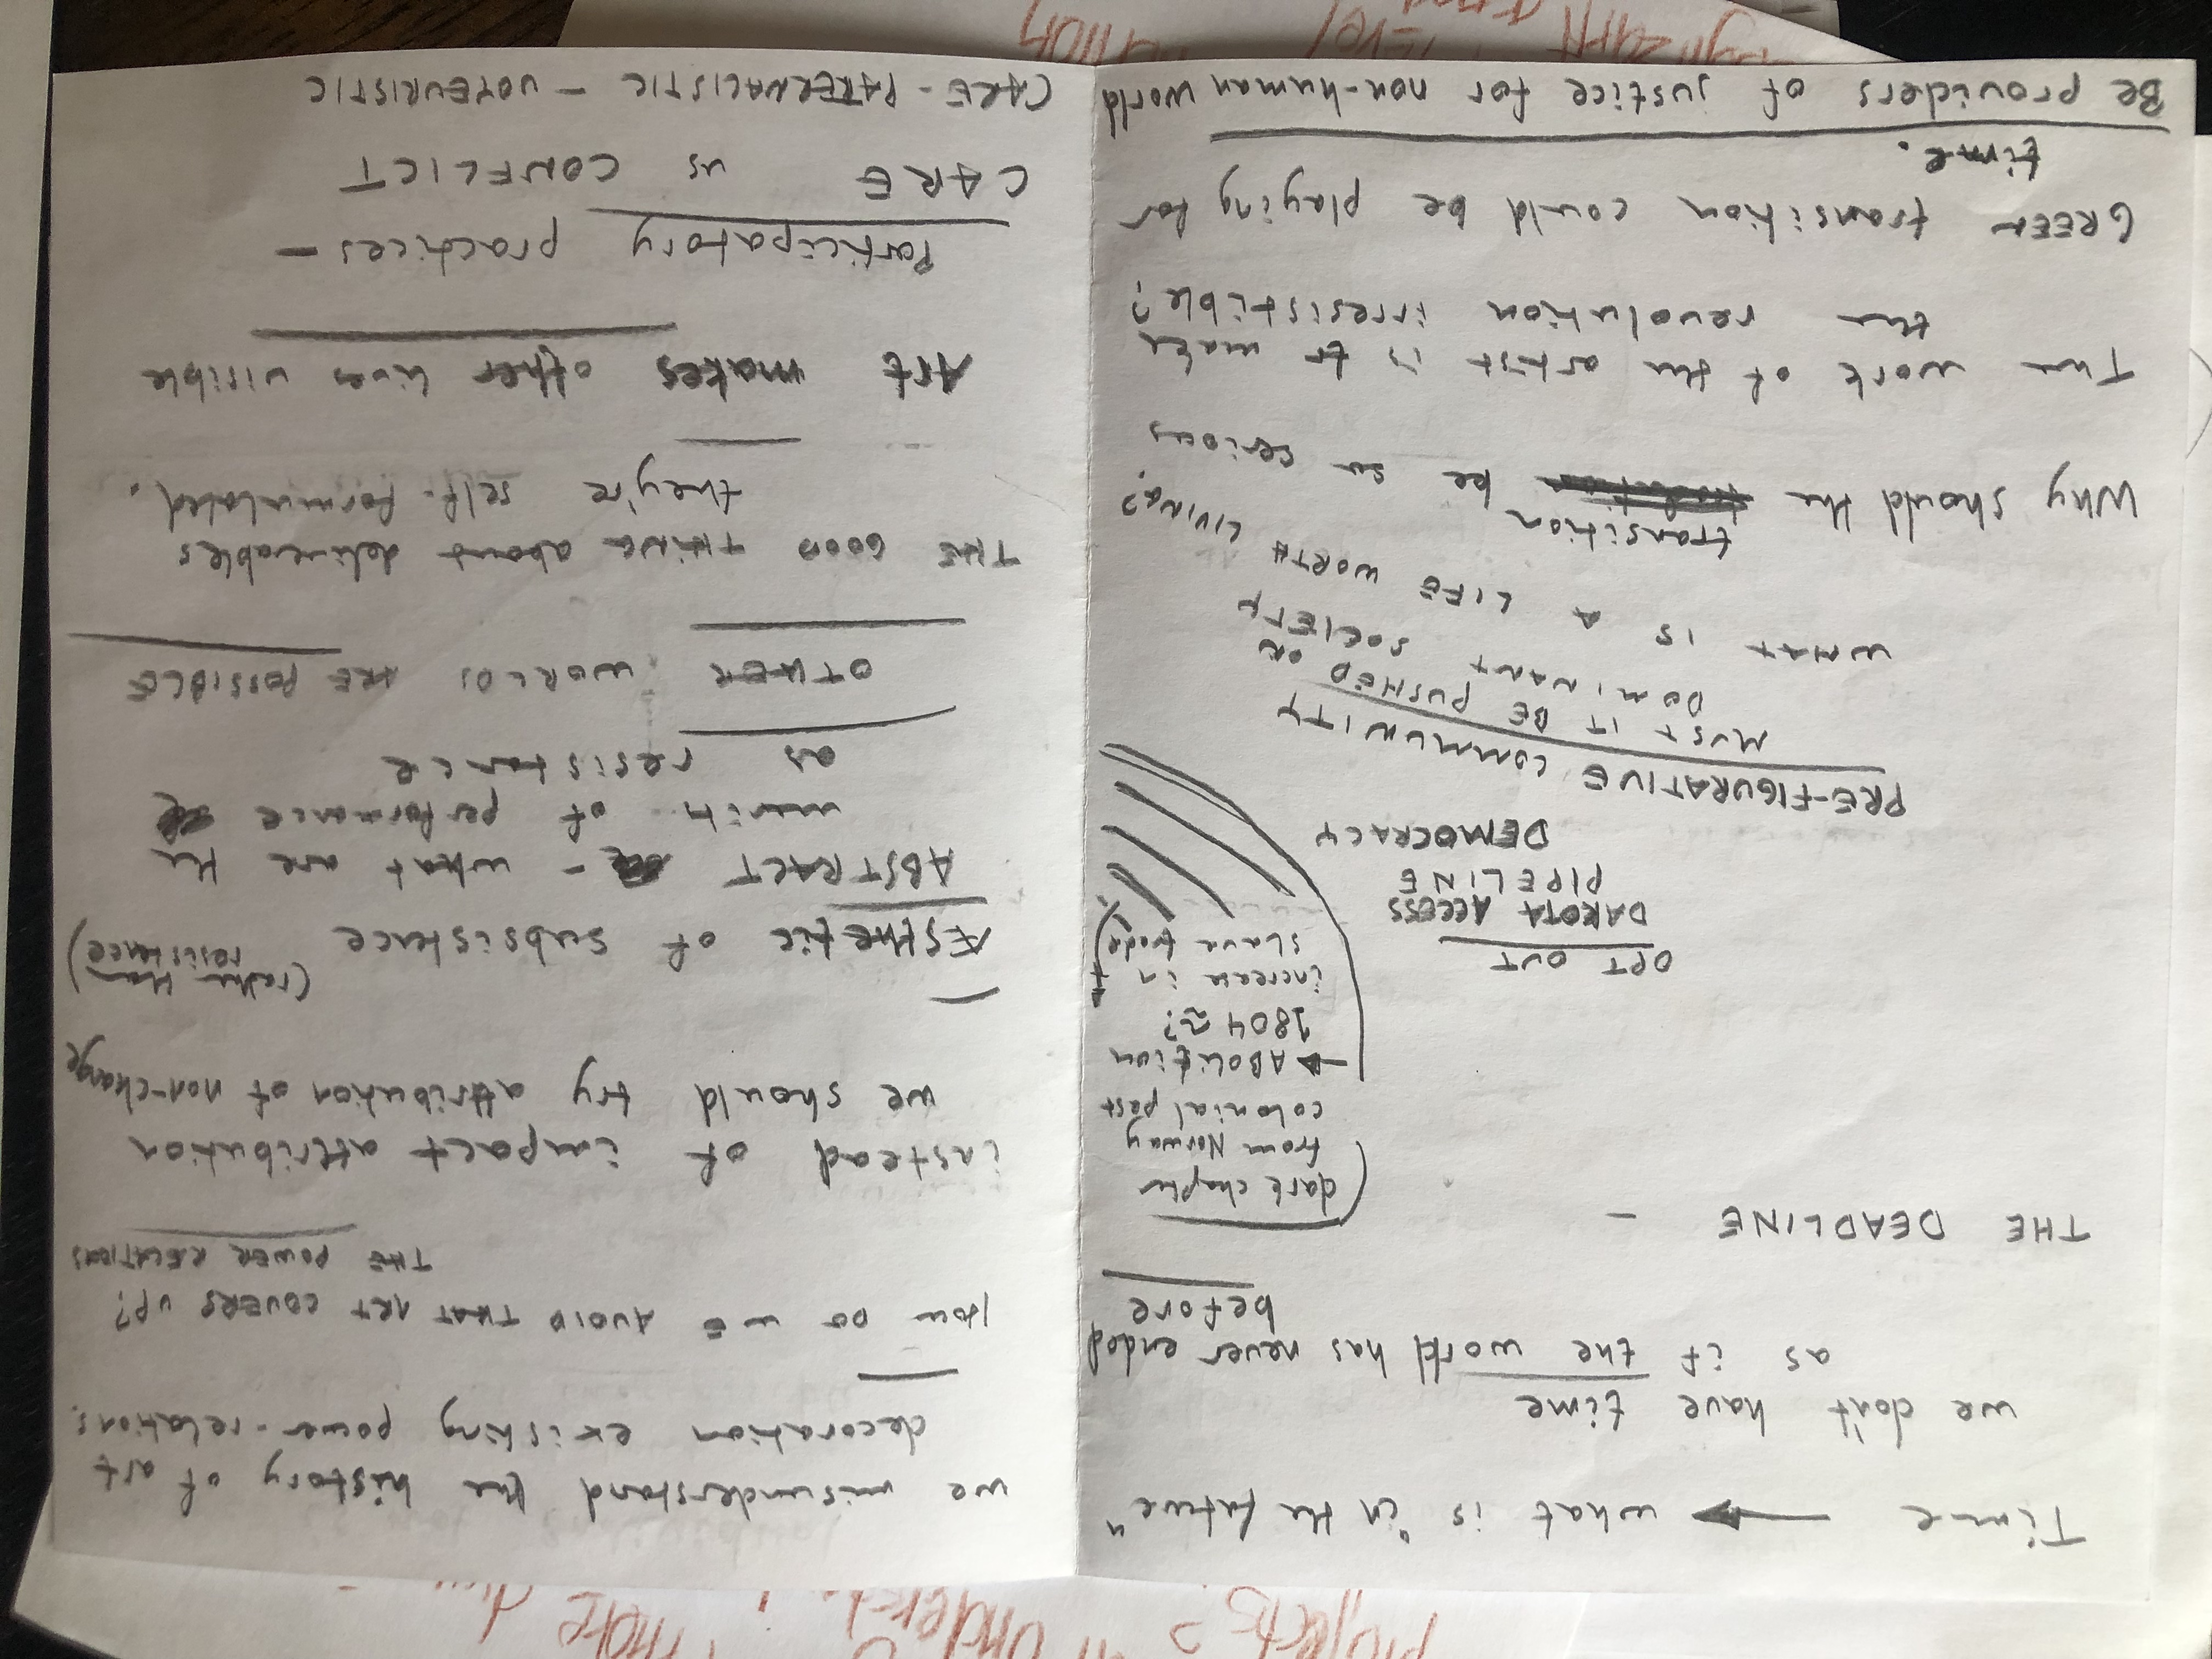 Time → what is "in the future"
we don't have time
as if the world has never ended
before
THE DEADLINE -
(dark chapter
from Norway
colonial past
→ ABOLITION
1804 ~?
increase in
slave trade)
OPT OUT
DAKOTA ACCESS
PIPELINE
DEMOCRACY
PRE-FIGURATIVE COMMUNITY
MUST IT BE PUSHED ON
DOMINANT SOCIETY
WHAT IS A LIFE WORTH LIVING?
transition
Why should the be so serious
The work of the artist is to make
the revolution irresistible?
GREEN transition could be playing for
time.
Be providers of justice for non-human world
we misunderstand the history of art
decoration existing power-relations.
How DO WE AVOID THAT ART COVERS UP?
THE POWER RELATIONS
instead of impact attribution
we should try attribution of non-change
(rather than
resistance)
AESTHETIC of subsistence
ABSTRACT - what are the
merits of performance
as resistance
OTHER WORLDS ARE POSSIBLE
THE GOOD THING about deliverables
they're self-formulated.
Art makes other lives visible
Participatory practices -
CARE vs CONFLICT
CARE - PATERNALISTIC - VOYEURISTIC